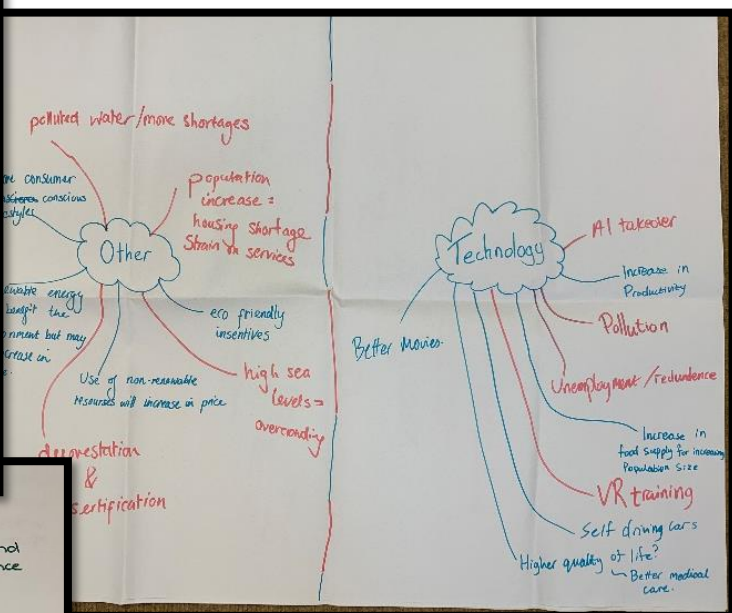 polluted water/more shortages
consumer
conscious
Other
population
increase =
housing shortage
Strain on services
energy
the
but may
in
eco friendly
insentives
Use of non-renewable
resourses will increase in price
high sea
levels =
overcrowding
&
Technology
AI takeover
Increase in
Productivity
Pollution
Unemployment/redundence
Better Movies.
Increase in
food supply for increasing
Population Size
VR training
Self driving cars
Higher quality of life?
Better medical
care.